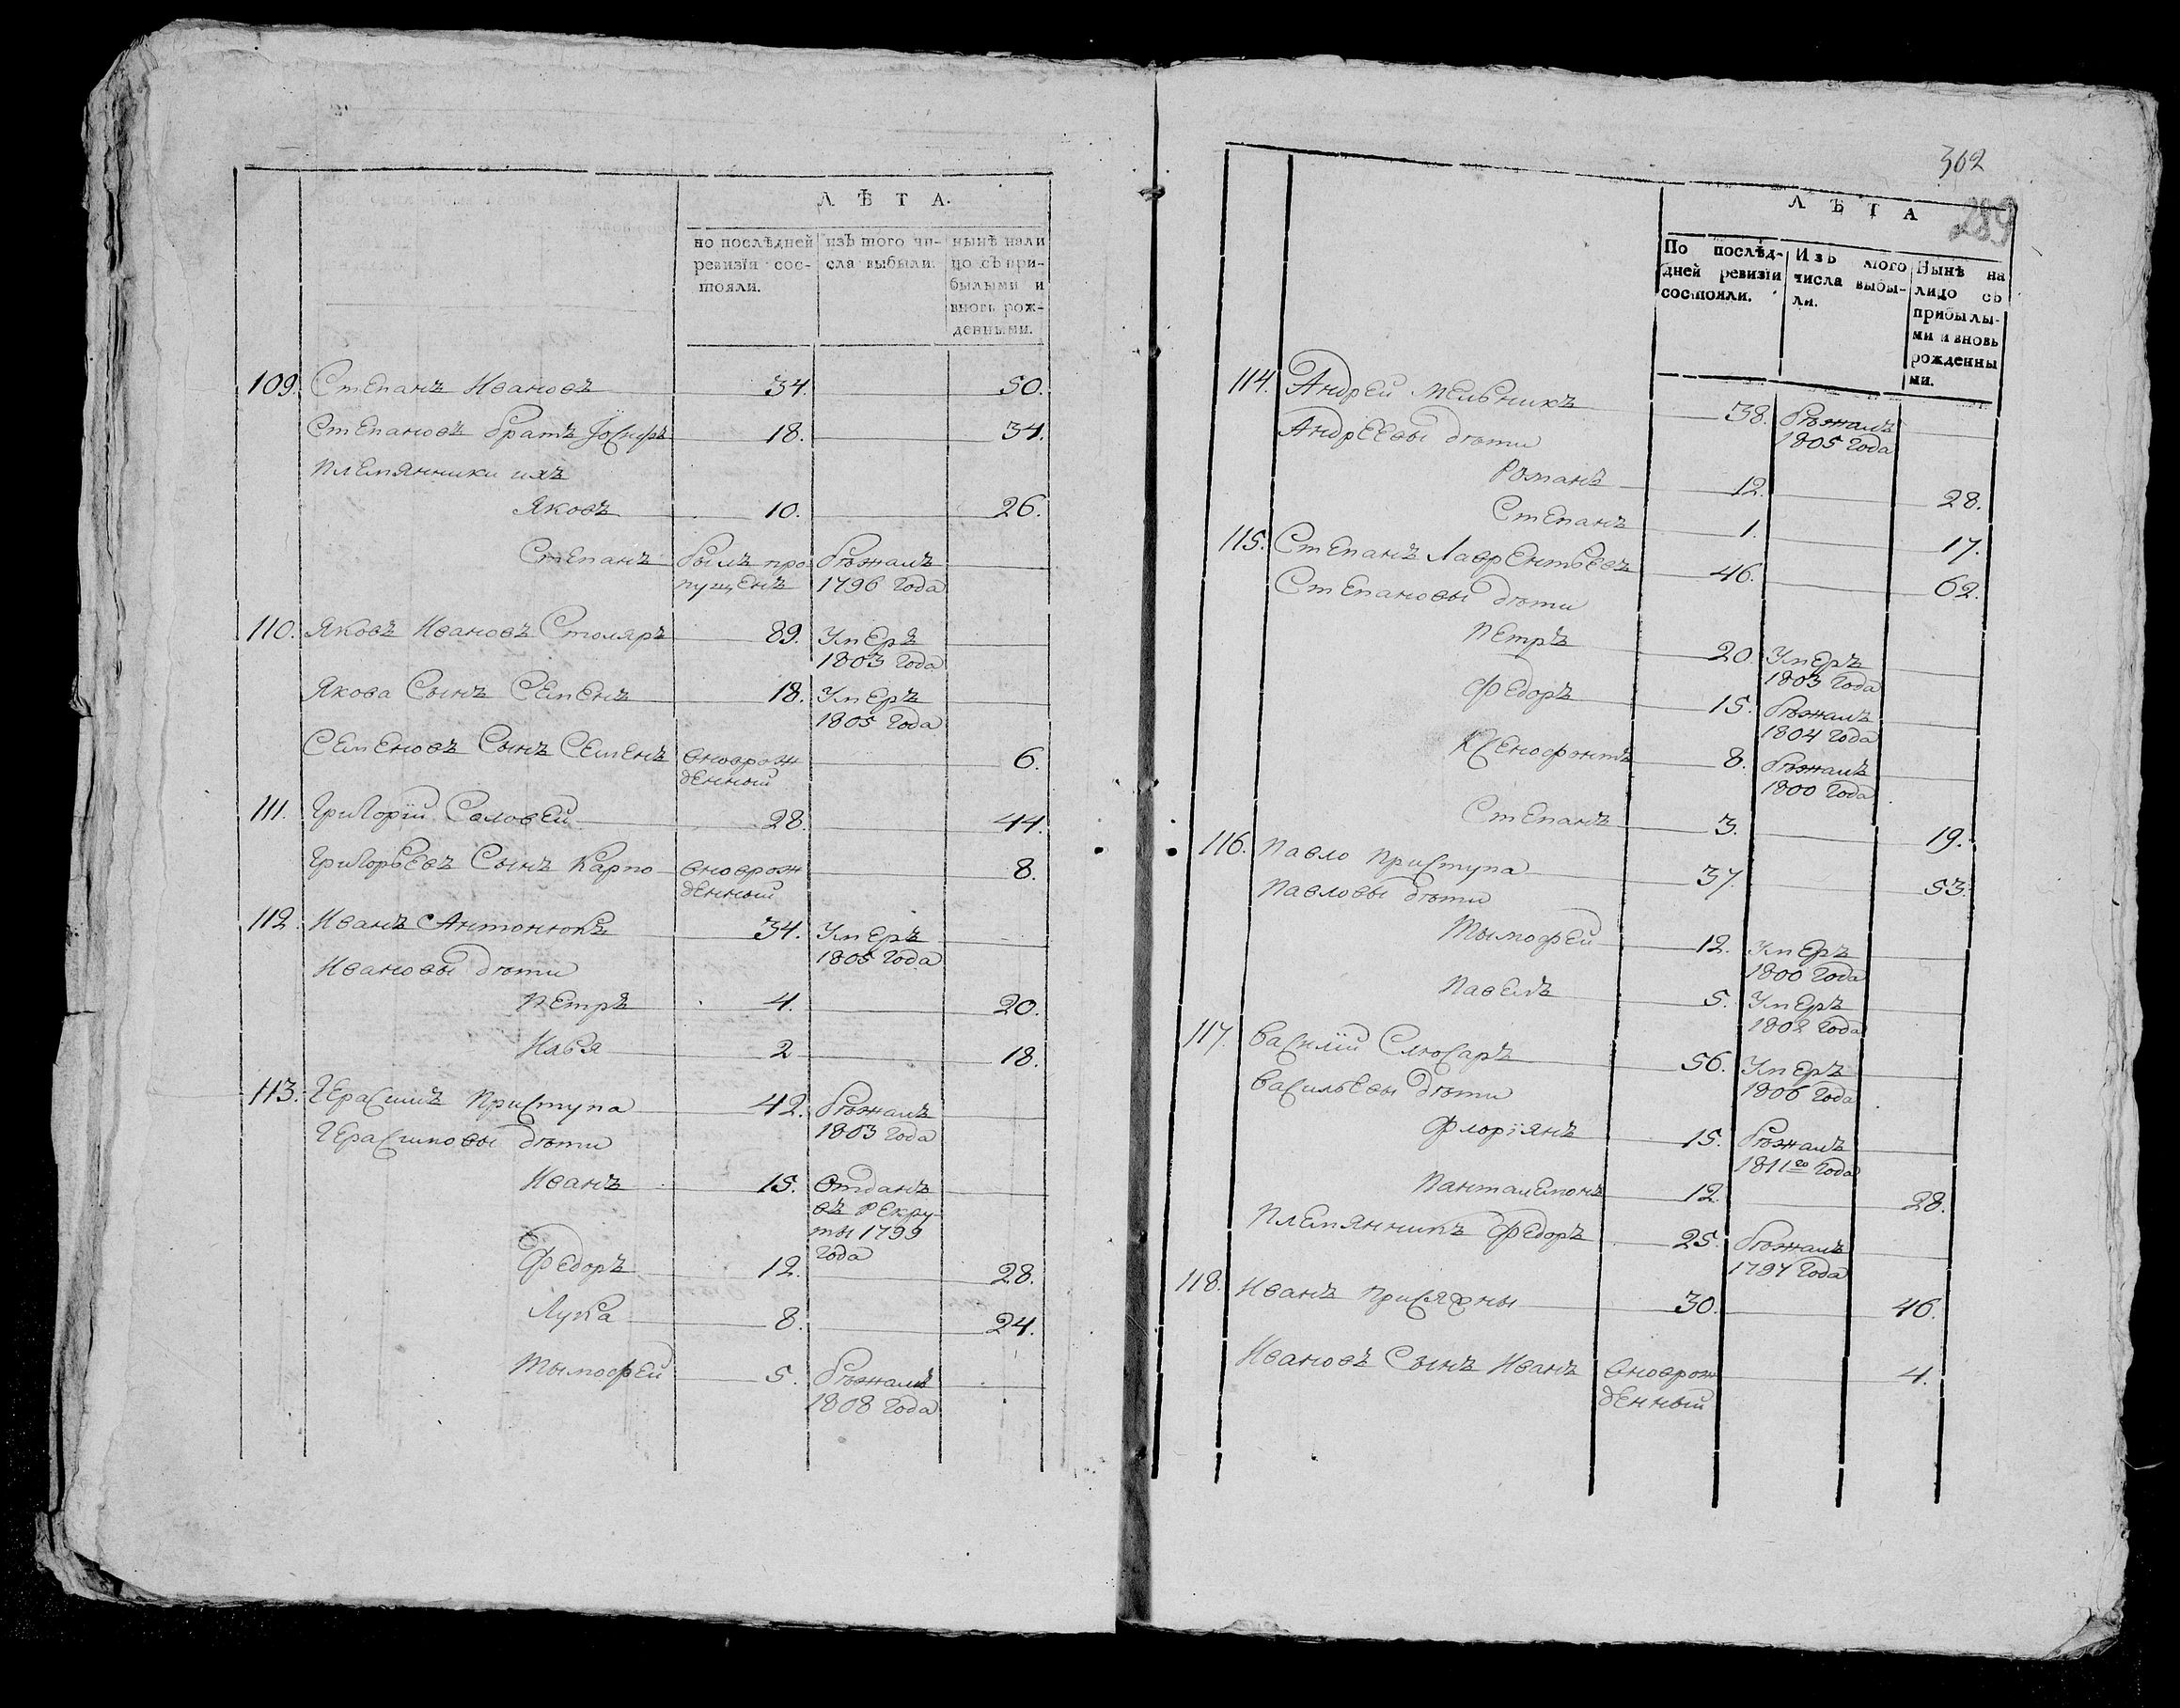 ЛѢТА.
по послѣдней ревизїи состояли.
изъ того числа выбыли.
нынѣ на лицо съ прибылыми и вновь рожденными.
109. Степанъ Ивановъ 34. 50.
Степановъ братъ Іосифъ 18. 34.
племянники ихъ
Яковъ 10. 26.
Степанъ былъ про бѣжалъ
пущенъ 1796 года
110. Яковъ Ивановъ Столяръ 89. Умеръ
1803 года
Якова Сынъ Семенъ 18. Умеръ
1805 года
Семеновъ Сынъ Семенъ вноврож 6.
денный
111. Григорїй Соловей 28. 44.
Григорьевъ Сынъ Карпо вноврож 8.
денный
112. Иванъ Антонюкъ 34. Умеръ
1805 года
Ивановы дѣти
Петръ 4. 20.
Илья 2 18.
113. Герасимъ Приступа 42. бѣжалъ
1803 года
Герасимовы дѣти
Иванъ 15. Отданъ
въ рекру
ты 1799
года
Федоръ 12. 28.
Лука 8. 24.
Тымофей 5. бѣжалъ
1808 года
302
289
ЛѢТА
По послѣдней ревизїи состояли.
Изъ того числа выбыли.
Нынѣ на лицо съ прибылыми и вновь рожденными.
114. Андрей Мельникъ 38. бѣжалъ
1805 года
Андреевы дѣти
Романъ 12. 28.
Степанъ 1. 17.
115. Степанъ Лаврентьевъ 46. 62.
Степановы дѣти
Петръ 20. Умеръ
1803 года
Федоръ 15. бѣжалъ
1804 года
Ксенофонтъ 8. бѣжалъ
1800 года
Степанъ 3. 19.
116. Павло Приступа 37. 53.
Павловы дѣти
Тымофей 12. Умеръ
1800 года
Павелъ 5. Умеръ
1802 года
117. Василїй Слюсаръ 56. Умеръ
1806 года
Васильевы дѣти
Флорїянъ 15. бѣжалъ
1811го года
Панталемонъ 12. 28.
Племянникъ Федоръ 25. бѣжалъ
1797 года
118. Иванъ Присяжны 30. 46.
Ивановъ Сынъ Иванъ вноврож 4.
денный